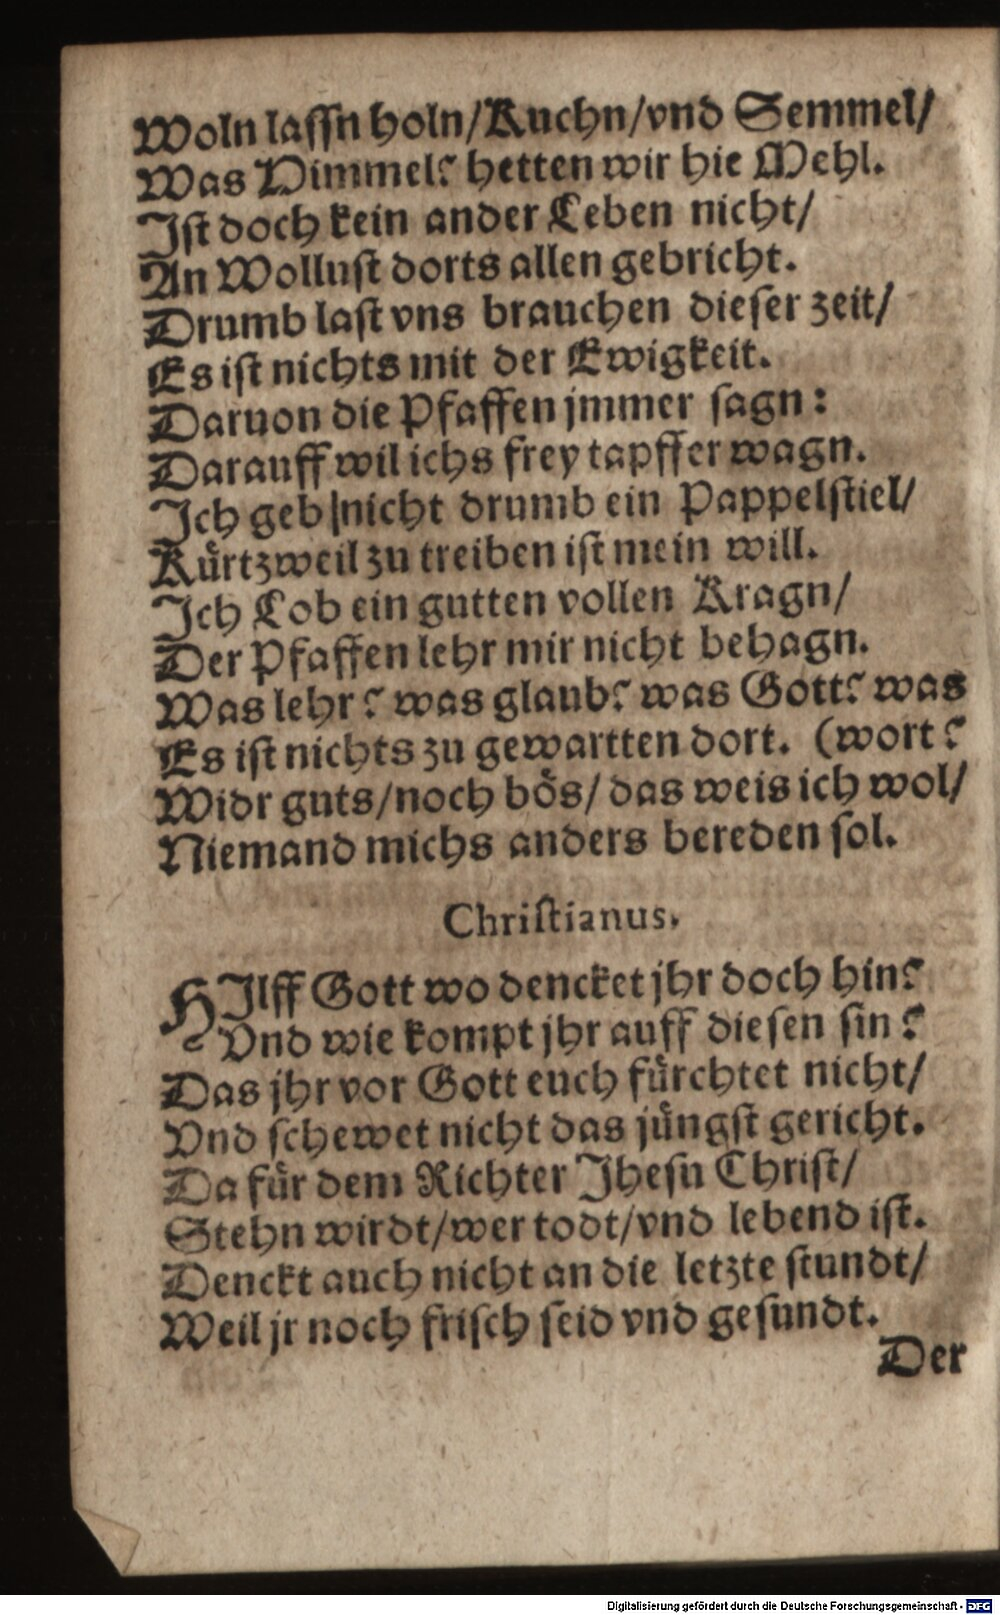 Woln lassn holn/Kuchn/vnd Semmel/
Was Himmel? hetten wir hie Mehl.
Ist doch kein ander Leben nicht/
An Wollust dorts allen gebricht.
Drumb last vns brauchen dieser zeit/
Es ist nichts mit der Ewigkeit.
Daruon die Pfaffen jmmer sagn:
Darauff wil ichs frey tapffer wagn.
Ich geb nicht drumb ein Pappelstiel/
Kürtzweil zu treiben ist mein will.
Ich Lob ein gutten vollen Kragn/
Der Pfaffen lehr mir nicht behagn.
Was lehr? was glaub? was Gott? was
Es ist nichts zu gewartten dort. (wort?
Widr guts/noch bös/das weis ich wol/
Niemand michs anders bereden sol.
Christianus.
HIlff Gott wo dencket jhr doch hin?
Vnd wie kompt jhr auff diesen sin?
Das jhr vor Gott euch fürchtet nicht/
Vnd schewet nicht das jüngst gericht.
Da für dem Richter Jhesu Christ/
Stehn wirdt/wer todt/vnd lebend ist.
Denckt auch nicht an die letzte stundt/
Weil jr noch frisch seid vnd gesundt.
Der
Digitalisierung gefördert durch die Deutsche Forschungsgemeinschaft - DFG